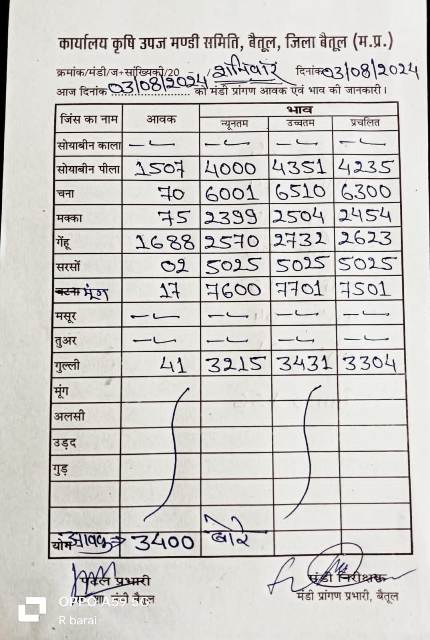 कार्यालय कृषि उपज मण्डी समिति, बैतूल, जिला बैतूल (म.प्र.)
क्रमांक/मंडी/ज+सांख्यिकी/20 शनिवार दिनांक 03/08/2024
आज दिनांक 03/08/2024 को मंडी प्रांगण आवक एवं भाव की जानकारी।
जिंस का नाम आवक भाव
न्यूनतम उच्चतम प्रचलित
सोयाबीन काला — — — —
सोयाबीन पीला 1507 4000 4351 4235
चना 70 6001 6510 6300
मक्का 75 2399 2504 2454
गेंहू 1688 2570 2732 2623
सरसों 02 5025 5025 5025
मूंग 17 7600 7701 7501
मसूर — — — —
तुअर — — — —
गुल्ली 41 3215 3431 3304
मूंग
अलसी
उड़द
गुड़
योग आवक 3400 बोरे
प्रभारी मंडी निरीक्षक
मंडी बैतूल मंडी प्रांगण प्रभारी, बैतूल
OPPO A59 5G
R barai